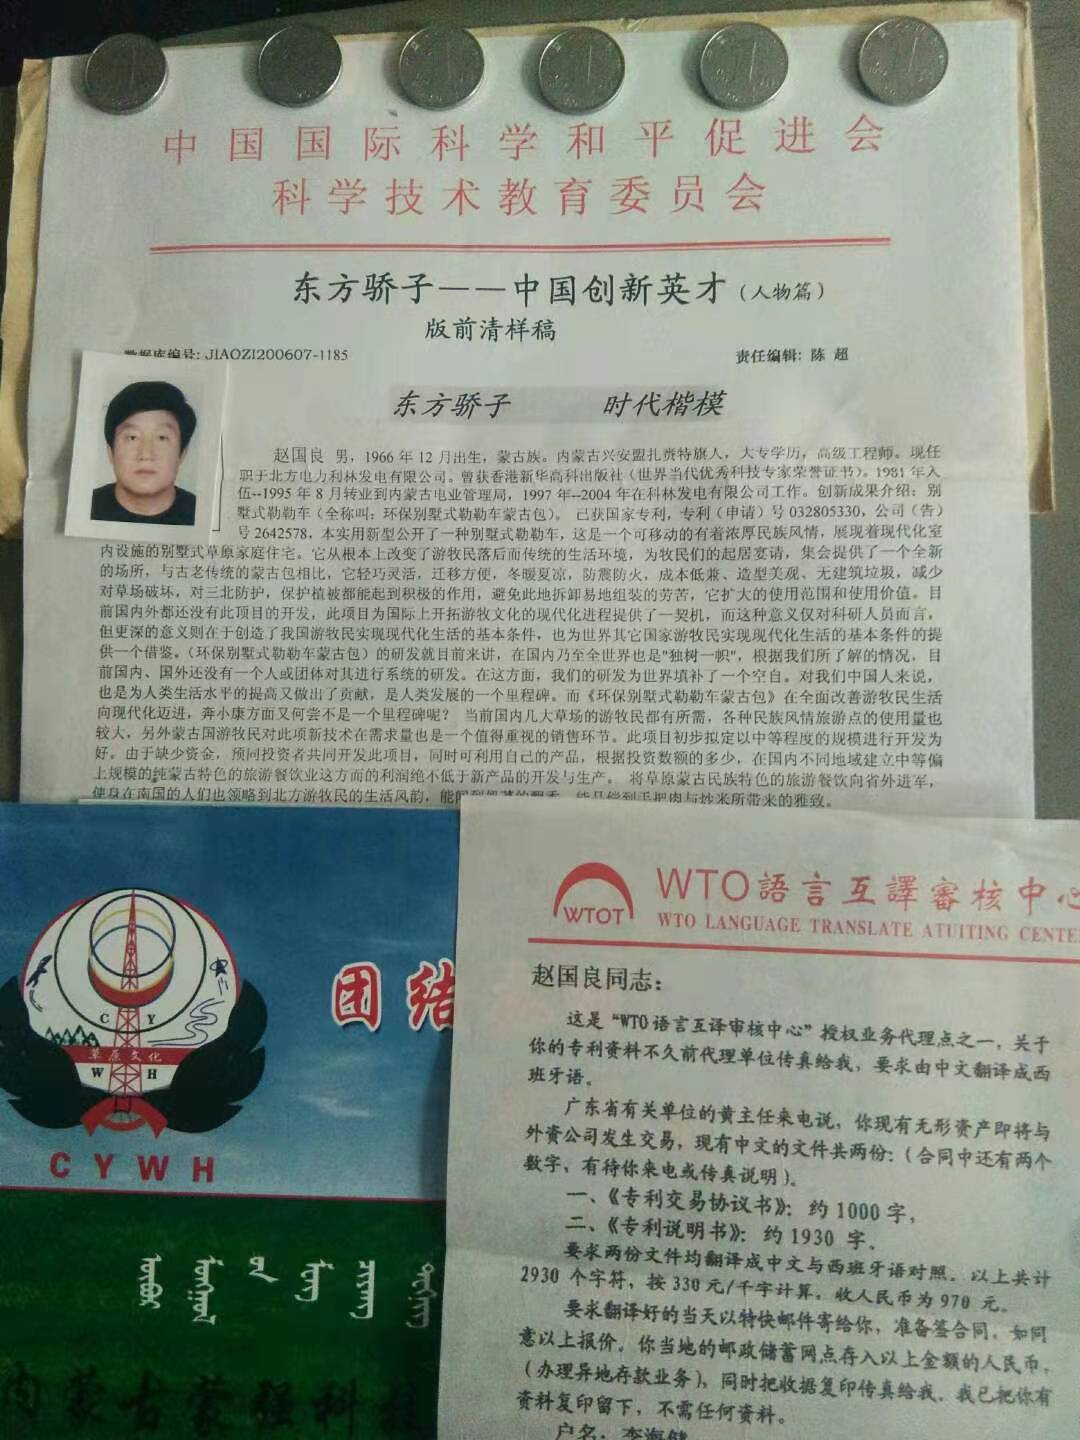 中国国际科学和平促进会
科学技术教育委员会
东方骄子——中国创新英才（人物篇）
版前清样稿
数据库编号: JIAOZI200607-1185
责任编辑: 陈 超
东方骄子 时代楷模
赵国良 男，1966 年 12 月出生，蒙古族。内蒙古兴安盟扎赉特旗人，大专学历，高级工程师。现任
职于北方电力利林发电有限公司。曾获香港新华高科出版社（世界当代优秀科技专家荣誉证书）。1981 年入
伍--1995 年 8 月转业到内蒙古电业管理局，1997 年--2004 年在科林发电有限公司工作。创新成果介绍：别
墅式勒勒车（全称叫：环保别墅式勒勒车蒙古包）。 已获国家专利，专利（申请）号 032805330，公司（告）
号 2642578，本实用新型公开了一种别墅式勒勒车，这是一个可移动的有着浓厚民族风情，展现着现代化室
内设施的别墅式草原家庭住宅。它从根本上改变了游牧民落后而传统的生活环境，为牧民们的起居宴请，集会提供了一个全新
的场所，与古老传统的蒙古包相比，它轻巧灵活，迁移方便，冬暖夏凉，防震防火，成本低兼、造型美观、无建筑垃圾，减少
对草场破坏，对三北防护，保护植被都能起到积极的作用，避免此地拆卸易地组装的劳苦，它扩大的使用范围和使用价值。目
前国内外都还没有此项目的开发，此项目为国际上开拓游牧文化的现代化进程提供了一契机，而这种意义仅对科研人员而言，
但更深的意义则在于创造了我国游牧民实现现代化生活的基本条件，也为世界其它国家游牧民实现现代化生活的基本条件的提
供一个借鉴。（环保别墅式勒勒车蒙古包）的研发就目前来讲，在国内乃至全世界也是"独树一帜"，根据我们所了解的情况，目
前国内、国外还没有一个人或团体对其进行系统的研发。在这方面，我们的研发为世界填补了一个空白。对我们中国人来说，
也是为人类生活水平的提高又做出了贡献，是人类发展的一个里程碑。而《环保别墅式勒勒车蒙古包》在全面改善游牧民生活
向现代化迈进，奔小康方面又何尝不是一个里程碑呢？ 当前国内几大草场的游牧民都有所需，各种民族风情旅游点的使用量也
较大，另外蒙古国游牧民对此项新技术在需求量也是一个值得重视的销售环节。此项目初步拟定以中等程度的规模进行开发为
好。由于缺少资金，预同投资者共同开发此项目，同时可利用自己的产品，根据投资数额的多少，在国内不同地域建立中等偏
上规模的纯蒙古特色的旅游餐饮业这方面的利润绝不低于新产品的开发与生产。 将草原蒙古民族特色的旅游餐饮向省外进军，
使身在南国的人们也领略到北方游牧民的生活风韵，能闻到 能品尝到手把肉与炒米所带来的雅致。
C Y
草原文化
W H
CYWH
团结
ᠥᠪᠥᠷ
内蒙古蒙强科技
WTOT
WTO語言互譯審核中心
WTO LANGUAGE TRANSLATE ATUITING CENTE
赵国良同志：
这是“WTO 语言互译审核中心”授权业务代理点之一，关于
你的专利资料不久前代理单位传真给我，要求由中文翻译成西
班牙语。
广东省有关单位的黄主任来电说，你现有无形资产即将与
外资公司发生交易，现有中文的文件共两份：（合同中还有两个
数字，有待你来电或传真说明）。
一、《专利交易协议书》：约 1000 字，
二、《专利说明书》：约 1930 字．
要求两份文件均翻译成中文与西班牙语对照．以上共计
2930 个字符，按 330 元/千字计算，收人民币为 970 元。
要求翻译好的当天以特快邮件寄给你，准备签合同，如同
意以上报价．你当地的邮政储蓄网点存入以上金额的人民币，
（办理异地存款业务），同时把收据复印传真给我．我已把你有
资料复印留下，不需任何资料。
户名：李海健